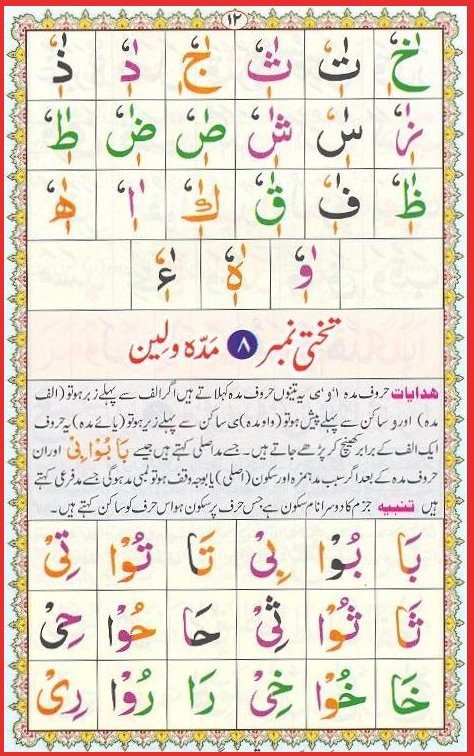 ۱۲
خٰٖٗ تٰٖٗ ثٰٖٗ جٰٖٗ دٰٖٗ ذٰٖٗ
زٰٖٗ سٰٖٗ شٰٖٗ صٰٖٗ ضٰٖٗ طٰٖٗ
ظٰٖٗ فٰٖٗ قٰٖٗ كٰٖٗ اٰٖٗ ھٰٖٗ
وٰٖٗ ہٰٖٗ ءٰٖٗ
تختی نمبر ۸ مَدّہ و لِین
ھدایات حروف مدہ ا، و، ی یہ تینوں حروف مدہ کہلاتے ہیں اگر الف سے پہلے زبر ہو تو (الف
مدہ) اور و ساکن سے پہلے پیش ہو تو (واو مدہ) ی ساکن سے پہلے زیر ہو تو (یائے مدہ) یہ حروف
ایک الف کے برابر کھینچ کر پڑھے جاتے ہیں۔ جسے مد اصلی کہتے ہیں جیسے بَا بُوْا بِیْ اور ان
حروف مدہ کے بعد اگر سبب مد ہمزہ اور سکون (اصلی) یا بوجہ وقف ہو تو لمبی مد ہوگی جسے مد فرعی کہتے
ہیں تنبیہ جزم کا دوسرا نام سکون ہے جس حرف پر سکون ہو اس حرف کو ساکن کہتے ہیں۔
بَا بُوْا بِیْ تَا تُوْا تِیْ
ثَا ثُوْا ثِیْ حَا حُوْا حِیْ
خَا خُوْا خِیْ رَا رُوْا رِیْ